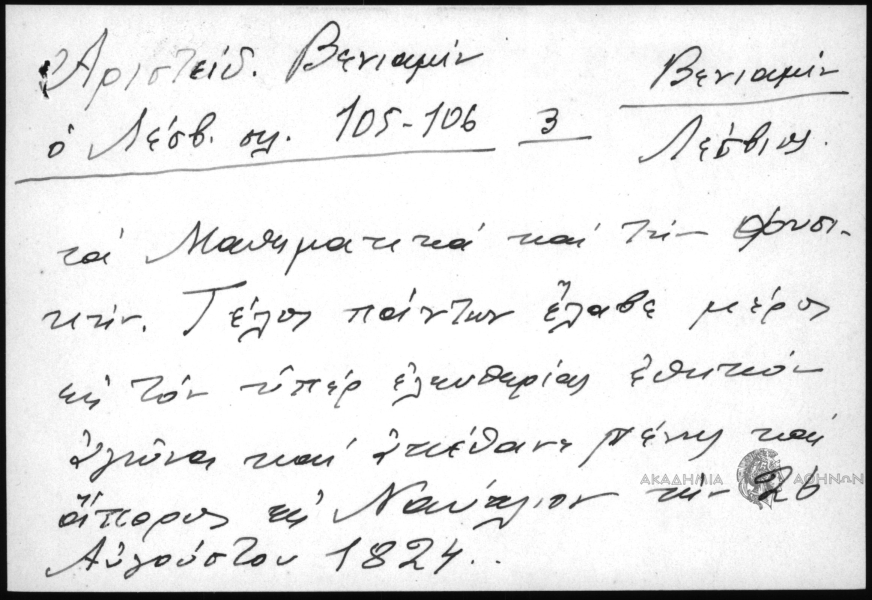 Ἀριστείδ. Βενιαμίν
ὁ Λέσβ. σελ. 105-106 3
Βενιαμίν
Λέσβιος.
τά Μαθηματικά καί τήν Φυσι-
κήν. Τέλος πάντων ἔλαβε μέρος
εἰς τόν ὑπέρ ἐλευθερίας ἐθνικόν
ἀγῶνα καί ἀπέθανε πένης καί
ἄπορος εἰς Ναύπλιον τήν 26
Αὐγούστου 1824..
ΑΚΑΔΗΜΙΑ ΑΘΗΝΩΝ